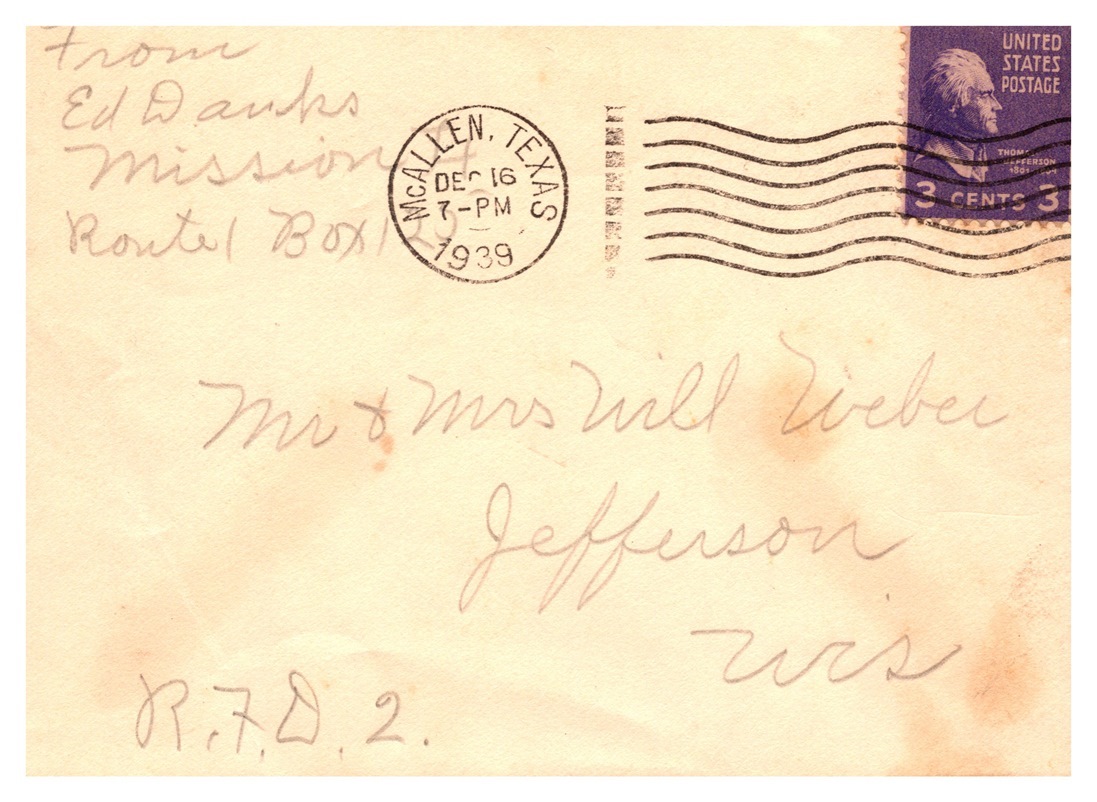 From
Ed Danks
Mission
Route 1 Box
McALLEN, TEXAS
DEC 16
7-PM
1939
UNITED
STATES
POSTAGE
THOMAS
JEFFERSON
3 CENTS 3
Mr & Mrs Will Weber
Jefferson
Wis
R.F.D. 2.